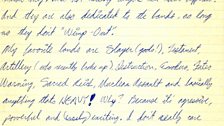 And they are also dedicated to the bands, as long
as they don't "Wimp-Out".
My favorite bands are Slayer (gods!), Testament,
Artillery (who recently broke up), Destruction, Exodus, Fates
Warning, Sacred Reich, Nuclear Assault and basically
anything that's HEAVY! Why? Because its agressive,
powerful and exciting. I don't really care